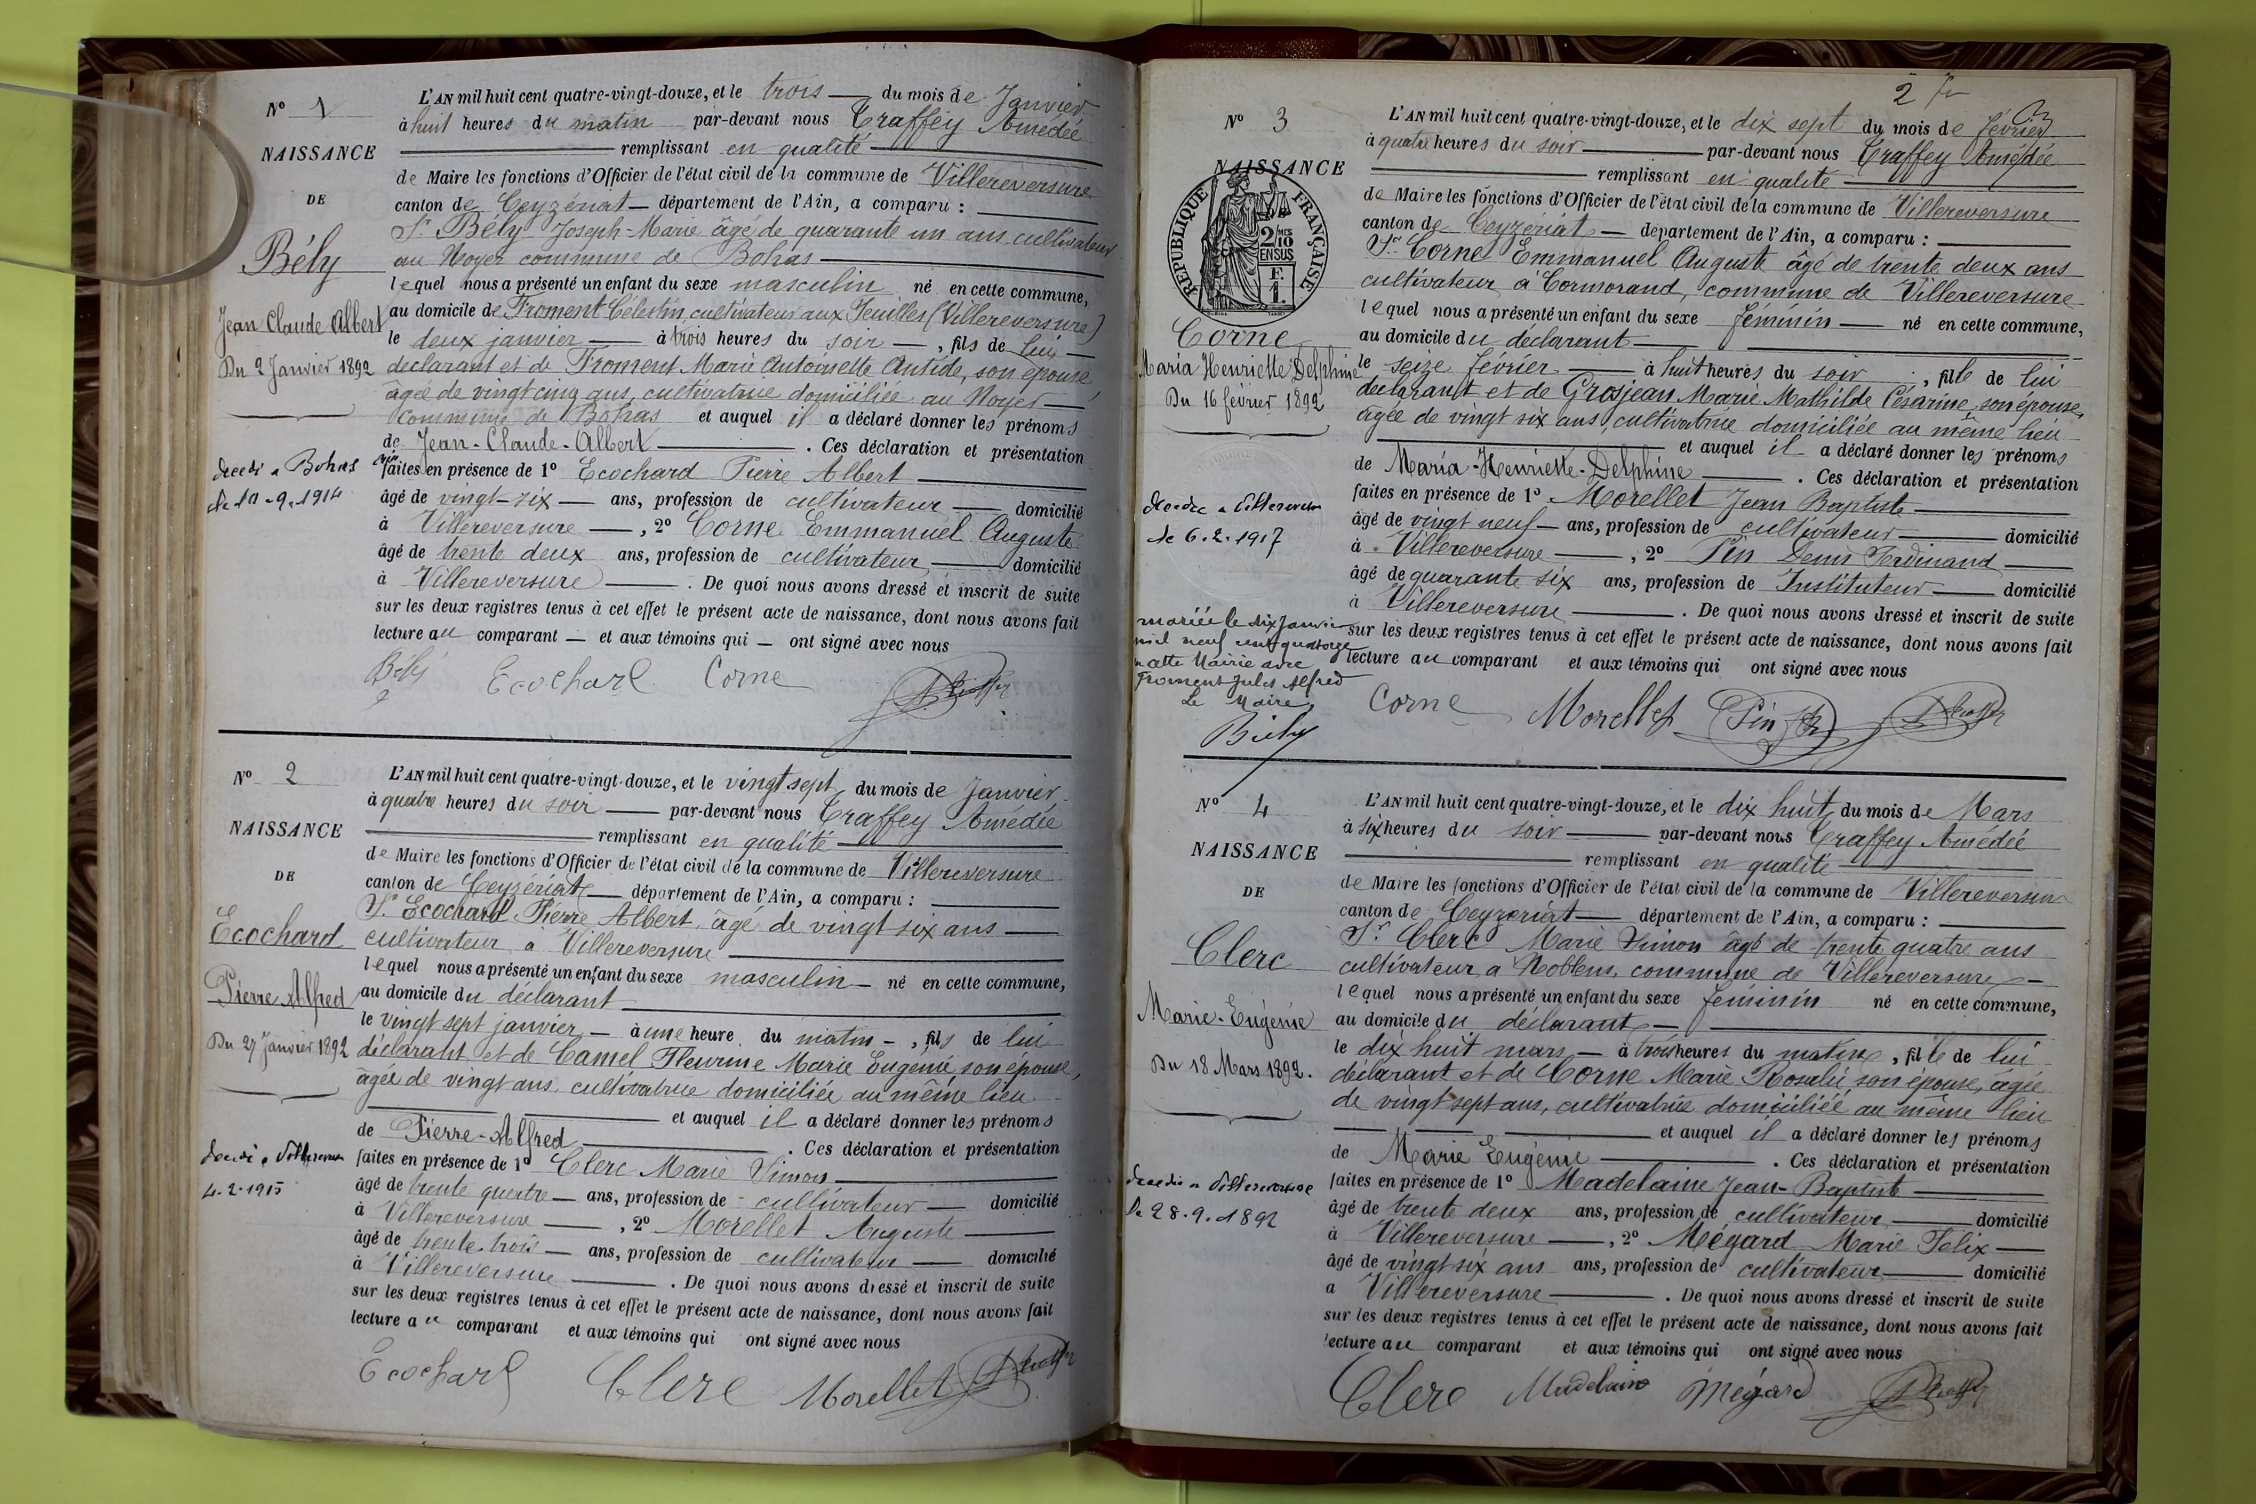 N° 1
NAISSANCE
DE
Bély
Jean Claude Albert
Du 2 Janvier 1892
décédé a Bohas
le 10-9-1914
L'AN mil huit cent quatre-vingt-douze, et le trois du mois de Janvier
à huit heures du matin par-devant nous Traffey Amédée
remplissant en qualité
de Maire les fonctions d'Officier de l'état civil de la commune de Villereversure
canton de Ceyzériat département de l'Ain, a comparu :
Sr. Bély Joseph-Marie âgé de quarante un ans cultivateur
au Noyer commune de Bohas
lequel nous a présenté un enfant du sexe masculin né en cette commune,
au domicile de Froment Célestin, cultivateur aux Feuilles (Villereversure)
le deux janvier à trois heures du soir, fils de lui
déclarant et de Froment Marie Antoinette Antide, son épouse,
âgée de vingt cinq ans, cultivatrice domiciliée au Noyer
commune de Bohas et auquel il a déclaré donner les prénoms
de Jean-Claude-Albert. Ces déclaration et présentation
faites en présence de 1° Ecochard Pierre Albert
âgé de vingt-six ans, profession de cultivateur domicilié
à Villereversure, 2° Corne Emmanuel Auguste
âgé de trente deux ans, profession de cultivateur domicilié
à Villereversure. De quoi nous avons dressé et inscrit de suite
sur les deux registres tenus à cet effet le présent acte de naissance, dont nous avons fait
lecture au comparant et aux témoins qui ont signé avec nous
Bély Ecochard Corne
N° 2
NAISSANCE
DE
Ecochard
Pierre Alfred
Du 27 Janvier 1892
décédé a Villereversure
4.2.1915
L'AN mil huit cent quatre-vingt-douze, et le vingt sept du mois de Janvier
à quatre heures du soir par-devant nous Traffey Amédée
remplissant en qualité
de Maire les fonctions d'Officier de l'état civil de la commune de Villereversure
canton de Ceyzériat département de l'Ain, a comparu :
Sr. Ecochard Pierre Albert âgé de vingt six ans
cultivateur à Villereversure
lequel nous a présenté un enfant du sexe masculin né en cette commune,
au domicile du déclarant
le vingt sept janvier à une heure du matin, fils de lui
déclarant et de Camel Fleurine Marie Eugénie son épouse,
âgée de vingt ans cultivatrice domiciliée au même lieu
et auquel il a déclaré donner les prénoms
de Pierre-Alfred. Ces déclaration et présentation
faites en présence de 1° Clerc Marie Simon
âgé de trente quatre ans, profession de cultivateur domicilié
à Villereversure, 2° Morellet Auguste
âgé de trente-trois ans, profession de cultivateur domicilié
à Villereversure. De quoi nous avons dressé et inscrit de suite
sur les deux registres tenus à cet effet le présent acte de naissance, dont nous avons fait
lecture au comparant et aux témoins qui ont signé avec nous
Ecochard Clerc Morellet
2
N° 3
NAISSANCE
RÉPUBLIQUE FRANÇAISE
2/10 MES EN SUS
1 F.
Corne
Maria Henriette Delphine
Du 16 février 1892
décédée a Villereversure
le 6.2.1917
mariée le dix Janvier
mil neuf cent quatorze
a cette Mairie avec
Froment Jules Alfred
Le Maire
Bély
L'AN mil huit cent quatre-vingt-douze, et le dix sept du mois de février
à quatre heures du soir par-devant nous Traffey Amédée
remplissant en qualité
de Maire les fonctions d'Officier de l'état civil de la commune de Villereversure
canton de Ceyzériat département de l'Ain, a comparu :
Sr. Corne Emmanuel Auguste âgé de trente deux ans
cultivateur à Cormorand, commune de Villereversure
lequel nous a présenté un enfant du sexe féminin né en cette commune,
au domicile du déclarant
le seize février à huit heures du soir, fille de lui
déclarant et de Grosjean Marie Mathilde Césarine, son épouse,
âgée de vingt six ans, cultivatrice domiciliée au même lieu
et auquel il a déclaré donner les prénoms
de Maria-Henriette-Delphine. Ces déclaration et présentation
faites en présence de 1° Morellet Jean Baptiste
âgé de vingt neuf ans, profession de cultivateur domicilié
à Villereversure, 2° Pin Denis Ferdinand
âgé de quarante six ans, profession de Instituteur domicilié
à Villereversure. De quoi nous avons dressé et inscrit de suite
sur les deux registres tenus à cet effet le présent acte de naissance, dont nous avons fait
lecture au comparant et aux témoins qui ont signé avec nous
Corne Morellet Pin
N° 4
NAISSANCE
DE
Clerc
Marie-Eugénie
Du 18 Mars 1892.
décédée a Villereversure
le 28.9.1892
L'AN mil huit cent quatre-vingt-douze, et le dix huit du mois de Mars
à six heures du soir par-devant nous Traffey Amédée
remplissant en qualité
de Maire les fonctions d'Officier de l'état civil de la commune de Villereversure
canton de Ceyzeriat département de l'Ain, a comparu :
Sr. Clerc Marie Simon âgé de trente quatre ans
cultivateur a Noblens, commune de Villereversure
lequel nous a présenté un enfant du sexe féminin né en cette commune,
au domicile du déclarant
le dix huit mars à trois heures du matin, fille de lui
déclarant et de Corne Marie Rosalie son épouse, âgée
de vingt sept ans, cultivatrice domiciliée au même lieu
et auquel il a déclaré donner les prénoms
de Marie Eugénie. Ces déclaration et présentation
faites en présence de 1° Madelaine Jean-Baptiste
âgé de trente deux ans, profession de cultivateur domicilié
à Villereversure, 2° Mégard Marie Felix
âgé de vingt six ans ans, profession de cultivateur domicilié
a Villereversure. De quoi nous avons dressé et inscrit de suite
sur les deux registres tenus à cet effet le présent acte de naissance, dont nous avons fait
lecture au comparant et aux témoins qui ont signé avec nous
Clerc Madelaine Mégard